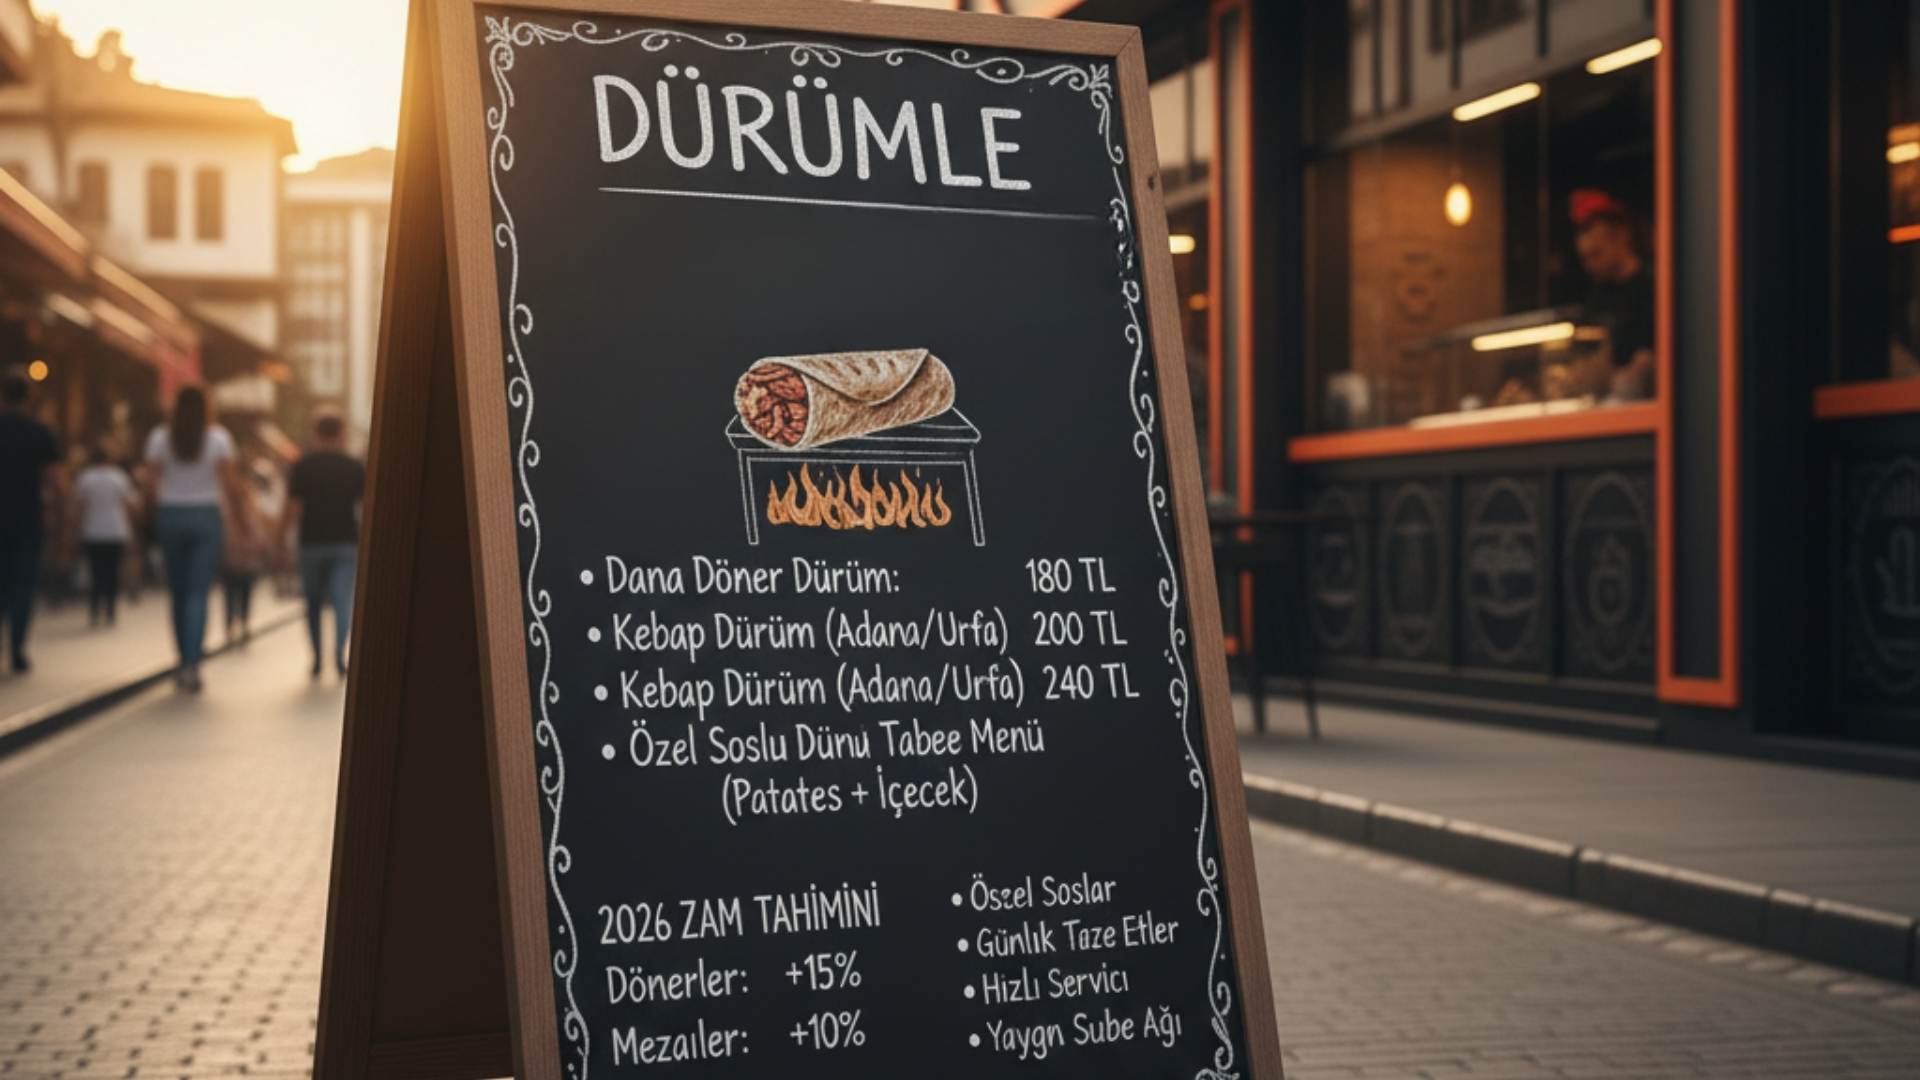 DÜRÜMLE
• Dana Döner Dürüm: 180 TL
• Kebap Dürüm (Adana/Urfa) 200 TL
• Kebap Dürüm (Adana/Urfa) 240 TL
• Özel Soslu Dürnu Tabee Menü
(Patates + İçecek)
2026 ZAM TAHİMİNİ
Dönerler: +15%
Mezaıler: +10%
• Öszel Soslar
• Günlık Taze Etler
• Hizlı Servicı
• Yaygn Sube Ağı